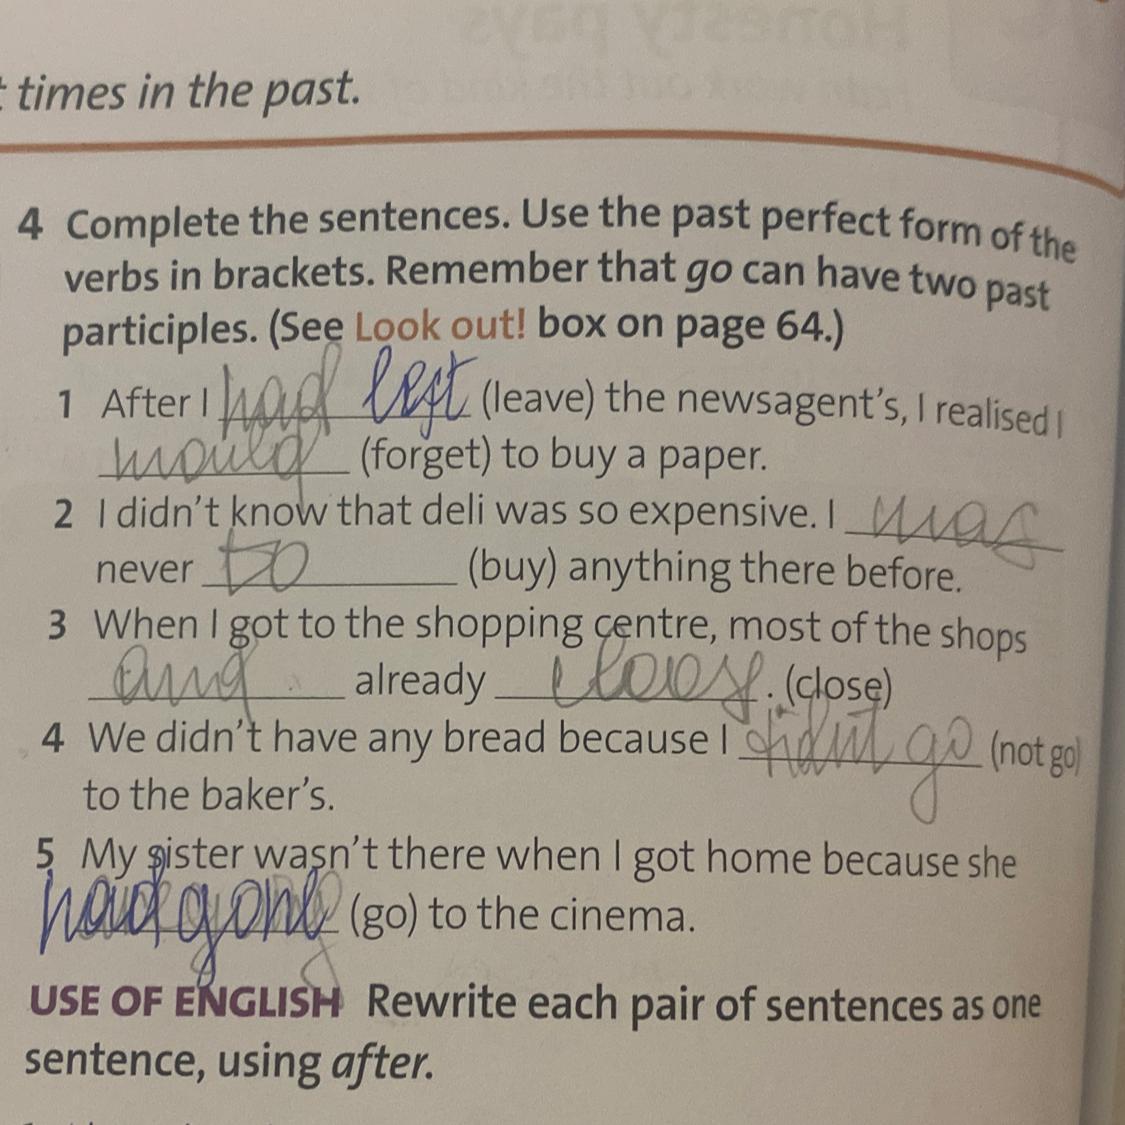 t times in the past.
4 Complete the sentences. Use the past perfect form of the
verbs in brackets. Remember that go can have two past
participles. (See Look out! box on page 64.)
1 After I had left (leave) the newsagent's, I realised I
would (forget) to buy a paper.
2 I didn't know that deli was so expensive. I was
never to (buy) anything there before.
3 When I got to the shopping centre, most of the shops
already . (close)
4 We didn't have any bread because I didnt go (not go)
to the baker's.
5 My sister wasn't there when I got home because she
had gone (go) to the cinema.
USE OF ENGLISH Rewrite each pair of sentences as one
sentence, using after.